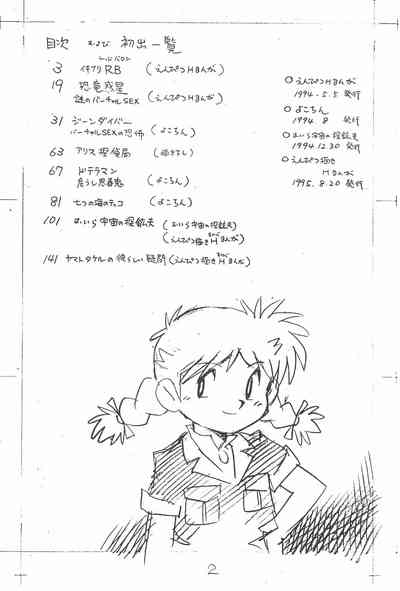 目次 および 初出一覧
レールバロン
3 イキナリRB (えんぴつHまんが)
19 恐竜惑星
謎のバーチャルSEX
31 ジーンダイバー
バーチャルSEXの恐怖 (よこちん)
63 アリス探偵局 (描き下し)
67 ドテラマン
危うし忍者鬼 (よこちん)
81 七つの海のティコ (よこちん)
101 はいぱら宇宙の探鉱夫 (はいぱら宇宙の探鉱夫)
(えんぴつ描きHまんが)
141 ヤマトタケルの彼らしい疑問 (えんぴつ描きHまんが)
○えんぴつHまんが
1994.5.5 発行
○よこちん
1994.8 発行
1994.12.30 発行
○えんぴつ描き
Hまんが
1995.8.20 発行
2